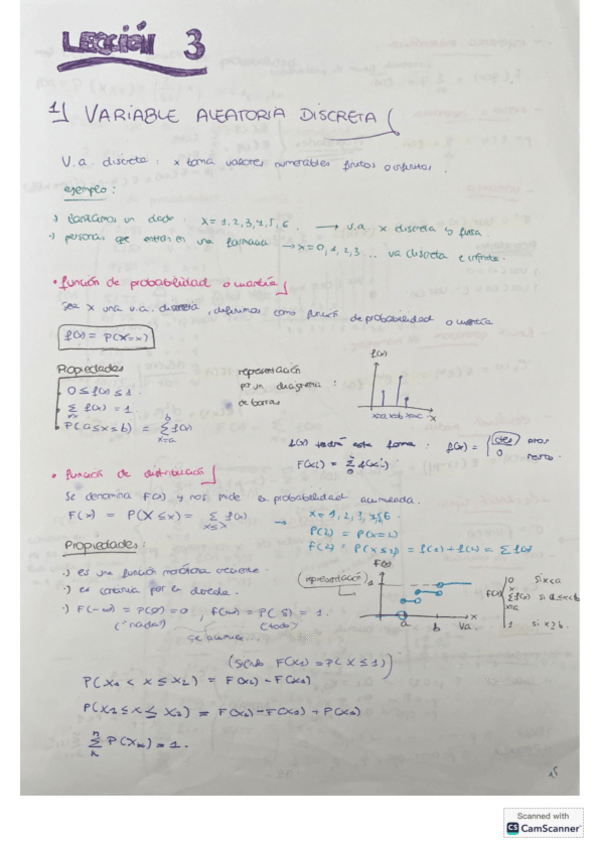 LECCIÓN 3
1) VARIABLE ALEATORIA DISCRETA
V.a. discreta: x toma valores numerables finitos o infinitos.
ejemplo:
lanzamos un dado: x=1,2,3,4,5,6. → v.a. x discreta finita.
personas que entran en una farmacia → x=0,1,2,3... va discreta e infinita.
• función de probabilidad o cuantía
Sea x una v.a. discreta, definimos como función de probabilidad o cuantía
f(x) = P(X=x)
Propiedades
0 ≤ f(x) ≤ 1.
Σ f(x) = 1.
P(a≤x≤b) = Σ f(x)
x=a
b
representación
por un diagrama:
de barras
f(x)
x=a x=b x=c x
f(x) tendrá esta forma: f(x) =
0 resto.
• función de distribución
Se denomina F(x) y nos mide la probabilidad acumulada.
F(x) = P(X≤x) = Σ f(x)
→ x=1,2,3,4,5,6
P(2) = P(x=2)
F(2) = P(x≤2) = f(1)+f(2) = Σ f(x)
Propiedades:
·) es una función monótona creciente.
·) es continua por la derecha.
·) F(-∞) = P(Ø) = 0, F(∞) = P(S) = 1.
("nada") (todo)
(representación)
F(x)
1
a b x
va.
F(x)
0 si x<a
Σ f(x) si a≤x<b
x=a
1 si x≥b.
(siendo F(x1) = P(x≤1))
P(x1 < x ≤ x2) = F(x2) - F(x1)
P(x1 ≤ x ≤ x2) = F(x2) - F(x1) + P(x1)
Σ P(xn) = 1.
15
Scanned with
CS CamScanner